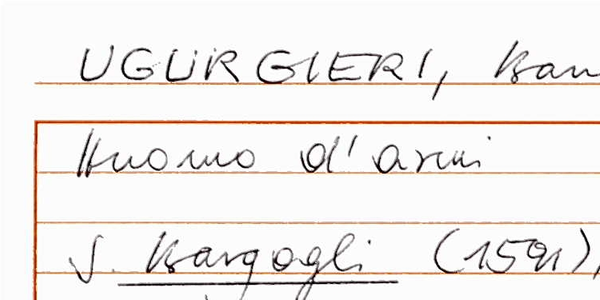 UGURGIERI, Ban
Huomo d'armi
S. Bargagli (1591),